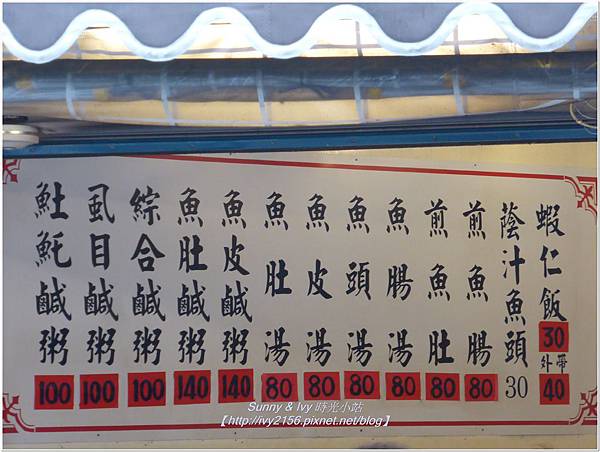 蝦仁飯30外帶40
蔭汁魚頭30
煎魚腸80
煎魚肚80
魚腸湯80
魚頭湯80
魚皮湯80
魚肚湯80
魚皮鹹粥140
魚肚鹹粥140
綜合鹹粥100
虱目鹹粥100
魠鹹粥100
Sunny & Ivy 時光小站
【http://ivy2156.pixnet.net/blog】